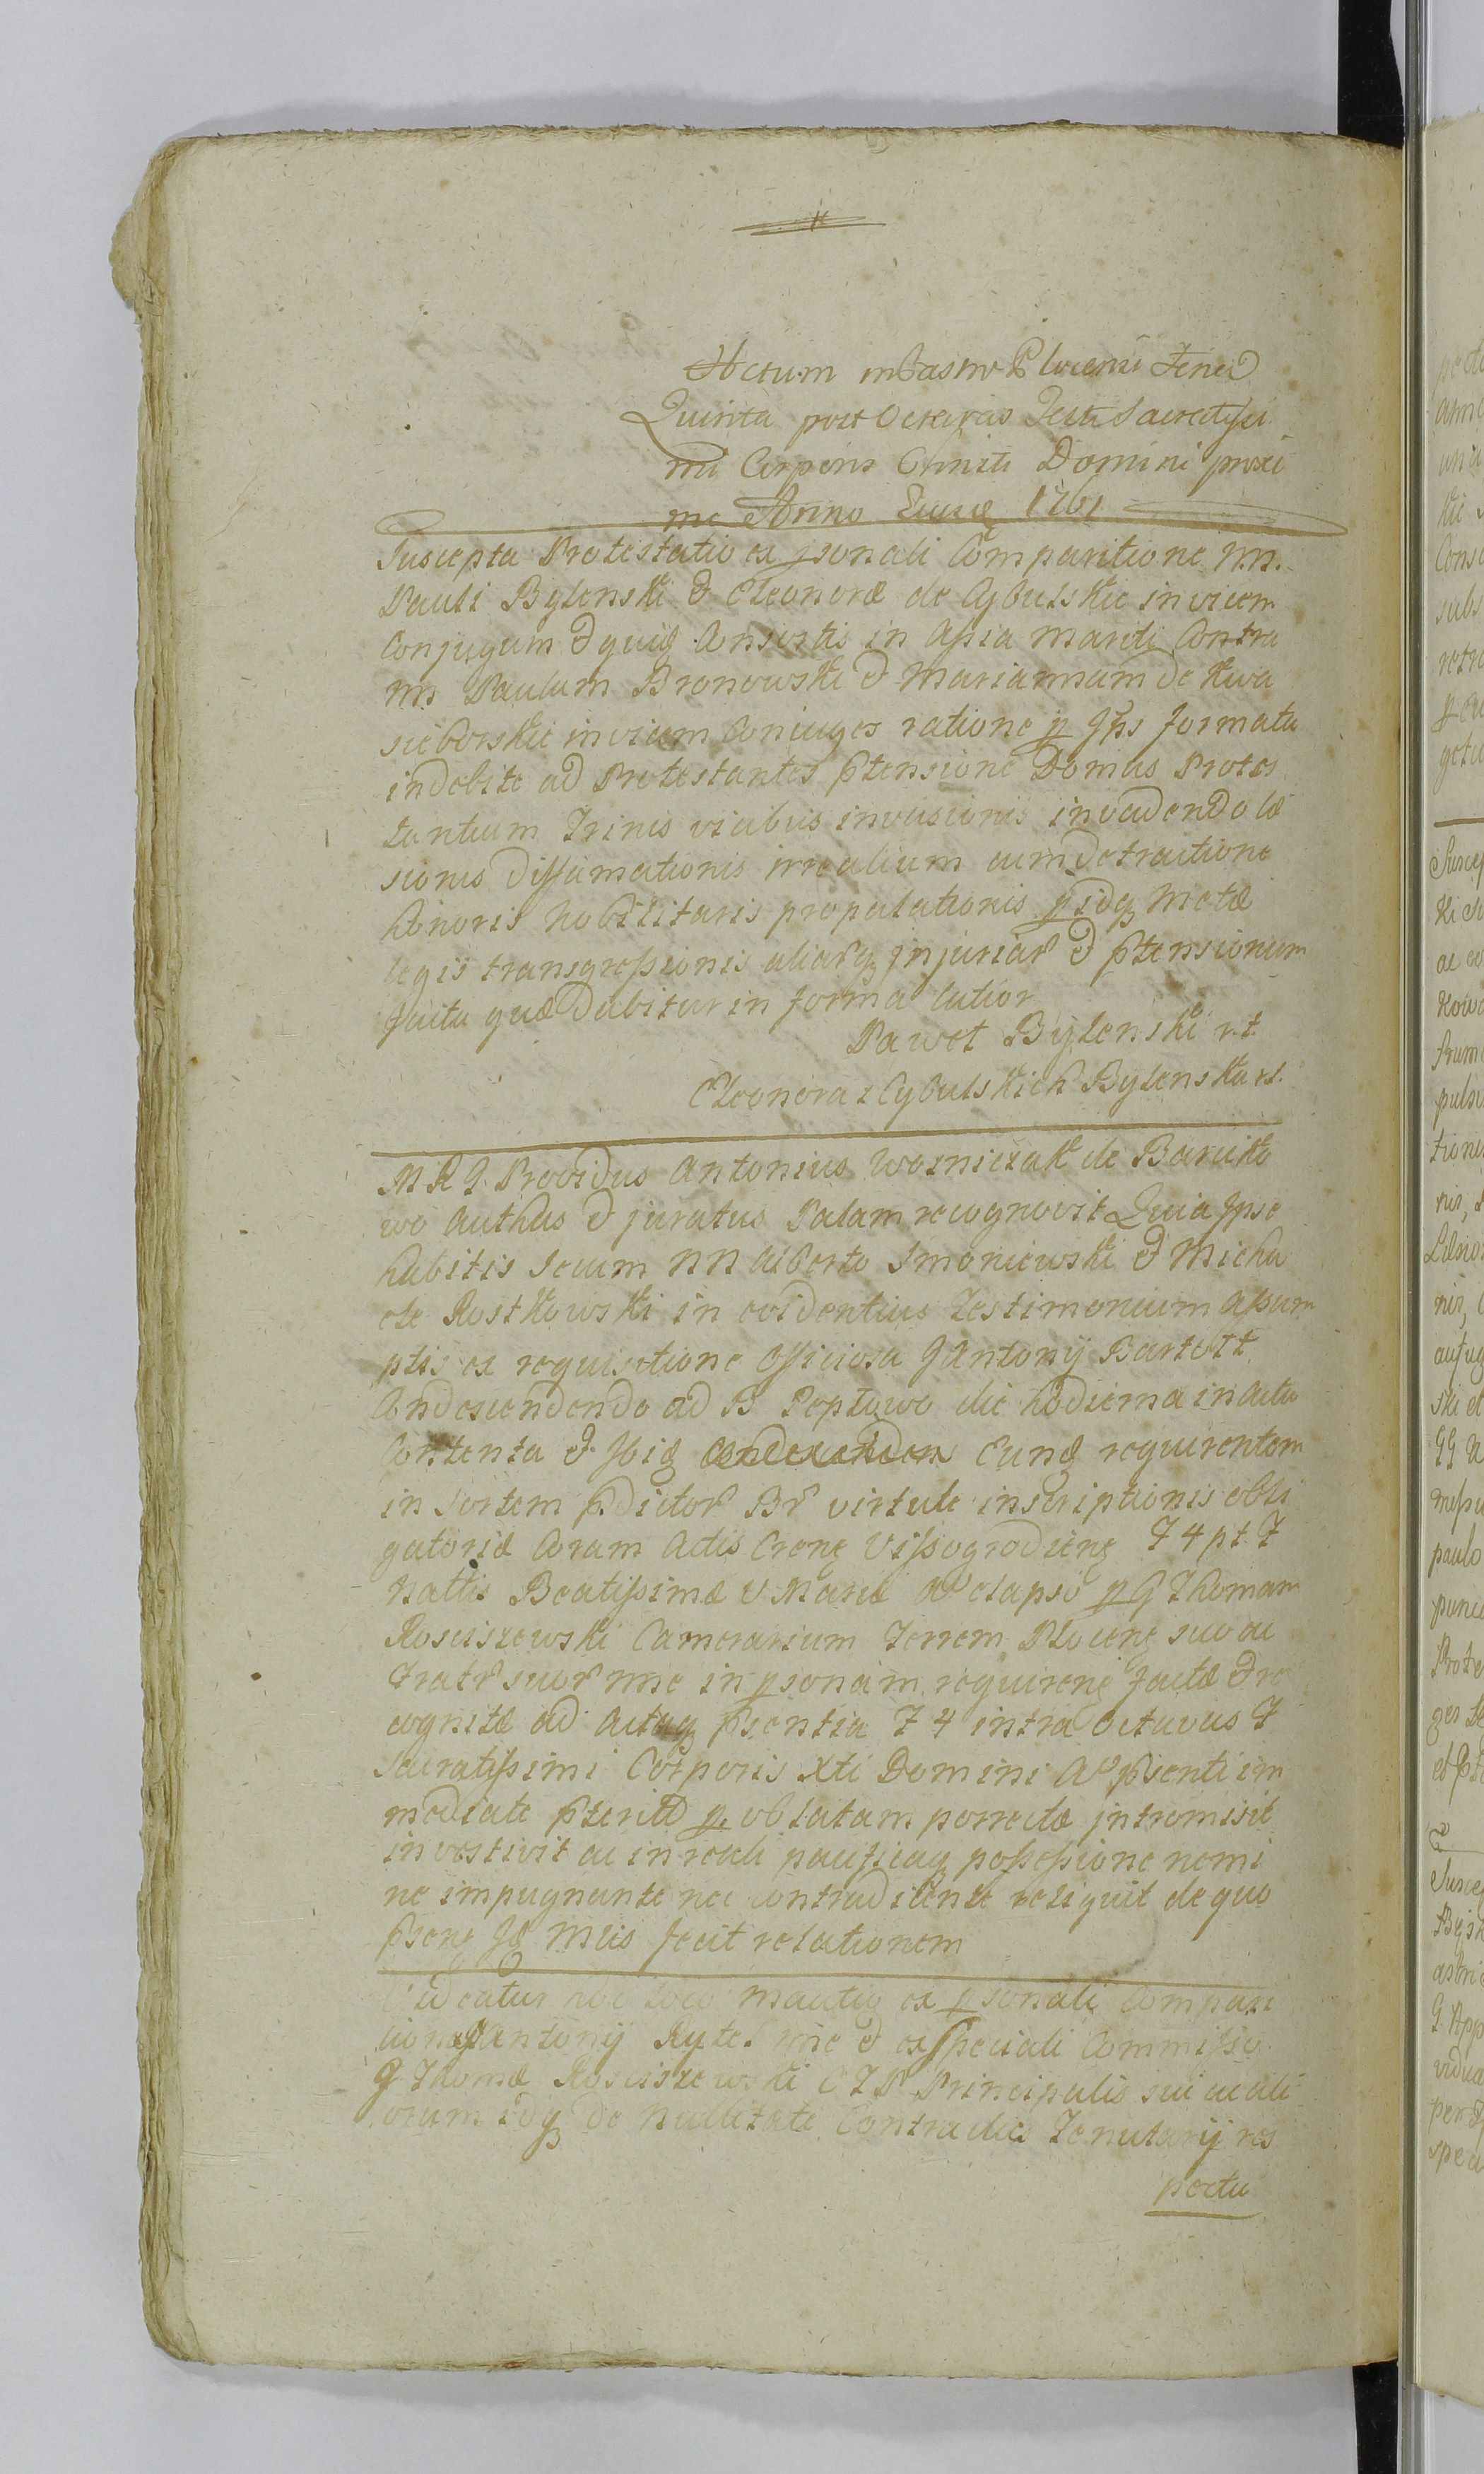 Actum in Castro Plocensi Feria
Quinta post Octavas Festi Sacratissi
mi Corporis Christi Domini proxi
me Anno Eius͠d 1761
Suscepta Protestatio ex psonali Comparitione NN.
Pauli Bylenski & Eleonoræ de Cybulskie invicem
Conjugum & quidͅ Consortis in Assia Mariti Contra
NN Paulum Bronowski & Mariannam de Kwa
sieborskie invicem Coniuges ratione p Ipͨs formata
indebite ad Protestantes ptensione Domus Protes
tantium Trinis vicibus invasionis invadendo læ
sionis diffamationis irrealium cum detractione
honoris Nobilitaris propalationis psidqͅ Metæ
legis transgressionis aliarqͅ injuriar & ptensionum
facta quæ dabitur in forma latior
Pawet Bylenski r.t.
Eleonora z Cybulskich Bylenska r.t.
M R G Providus Antonius Wozniczak de Barciko
wo Authus & juratus Palam recognovit Quia Ipse
habitis secum NN Alberto Smoniewski & Micha
ele Rostkowski in evidentius Testimonium assum
ptis ex requisitione Officiosa G Antonij Bartolt
Condescendendo ad B Poptowo die hodierna in actu
Contenta & Ibidͅ Eundͅ requirentem
in Sortem pdictor Br virtute inscriptionis obli
gatoriæ Coram Actis Crenͅ Vissogrodienͅ F 4 pt F
Nattis Beatissimæ V Mariæ Aº elapso p G Thomam
Rosciszewski Camerarium Terrem Plocenͅ suo ac
Fratr suor nnie in psonam requirenͅ factæ & re
cognitæ ad Actaqͅ psentia F 4 intra Octavas F
Sacratissimi Corporis Xti Domini Aº psenti im
mediate pteriti p oblatam porrectæ intromisit
investivit ac in reali pacificaqͅ possessione nemi
ne impugnante nec contradicente reliquit de quo
psenͅ Idͅ Mlis fecit relationem
loco ex psonali Compari
tione G Antonij Rytel nnie & ex speciali Commisso
G Thomæ Rosciszewski C T P Principalis sui ac ali
orum idqͅ de Nullitate Contractus Tenutarij res
pectu